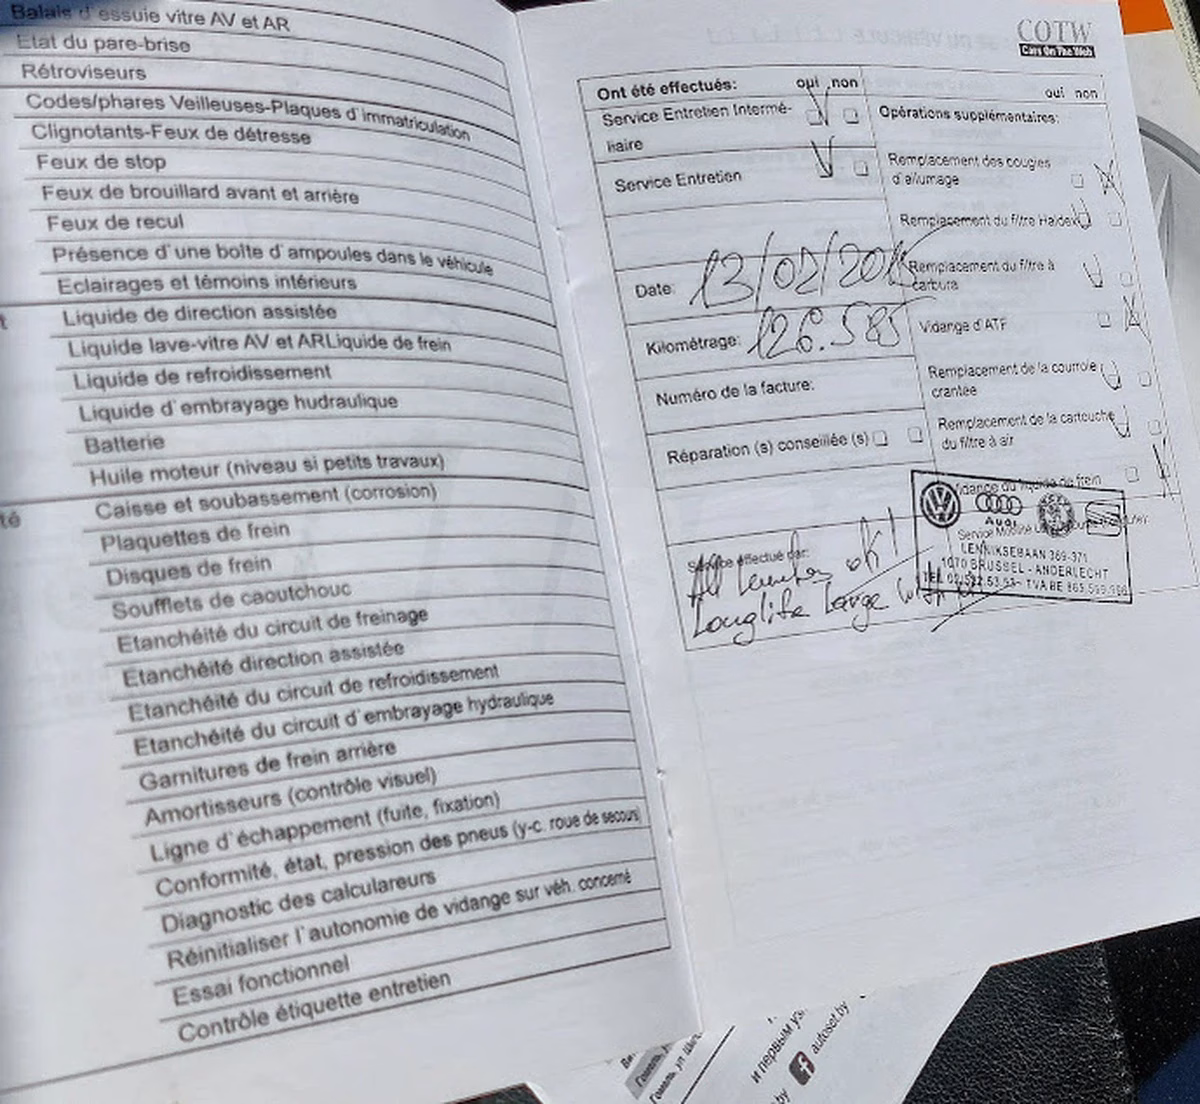 Balais d'essuie vitre AV et AR
Etat du pare-brise
Rétroviseurs
Codes/phares Veilleuses-Plaques d'immatriculation
Clignotants-Feux de détresse
Feux de stop
Feux de brouillard avant et arrière
Feux de recul
Présence d'une boîte d'ampoules dans le véhicule
Eclairages et témoins intérieurs
Liquide de direction assistée
Liquide lave-vitre AV et ARLiquide de frein
Liquide de refroidissement
Liquide d'embrayage hudraulique
Batterie
Huile moteur (niveau si petits travaux)
Caisse et soubassement (corrosion)
Plaquettes de frein
Disques de frein
Soufflets de caoutchouc
Etanchéité du circuit de freinage
Etanchéité direction assistée
Etanchéité du circuit de refroidissement
Etanchéité du circuit d'embrayage hydraulique
Garnitures de frein arrière
Amortisseurs (contrôle visuel)
Ligne d'échappement (fuite, fixation)
Conformité, état, pression des pneus (y-c. roue de secours)
Diagnostic des calculareurs
Réinitialiser l'autonomie de vidange sur véh. concerné
Essai fonctionnel
Contrôle étiquette entretien
COTW
Cars On The Web
Ont été effectués: oui non
Service Entretien Intermé-
liaire
Service Entretien
Date: 13/02/201
Kilométrage: 126.585
Numéro de la facture:
Réparation (s) conseillée (s)
Service effectué par:
All ok!
Longlife
oui non
Opérations supplémentaires:
Remplacement des bougies
d'allumage
Remplacement du filtre Haldex
Remplacement du filtre à
carbura
Vidange d'ATF
Remplacement de la courroie
crantée
Remplacement de la cartouche
du filtre à air
Vidange du liquide de frein
Audi
LENNIKSEBAAN 369-371
1070 BRUSSEL - ANDERLECHT
и первым уз
autoset.by